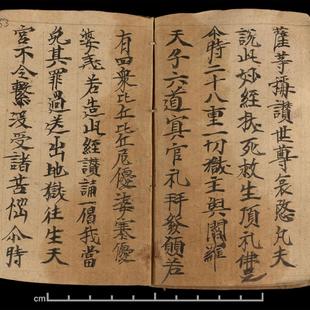 薩等稱讃世尊哀愍凡夫
說此妙經拔死救生頂礼佛足
尒時二十八重一切獄主與閻羅
天子六道冥官礼拜發願若
有四衆比丘比丘尼優婆塞優
婆夷若造此經讃誦一偈我當
免其罪過送出地獄往生天
宮不令繫受諸苦惱尒時
53
cm